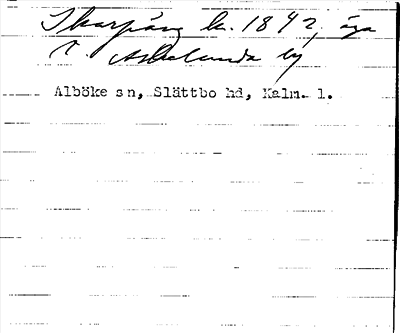 Skarpäng bn. 1842, äga
i Arbelunda by
Alböke sn, Slättbo hd, Kalm. l.